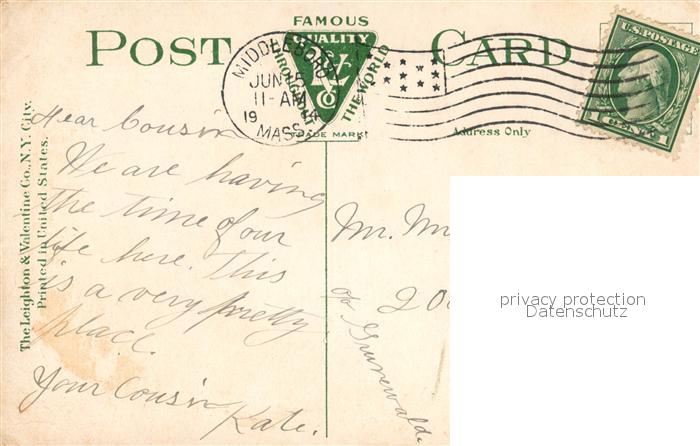 POST CARD
FAMOUS
QUALITY
THROUGHOUT
THE WORLD
L & V
CO
TRADE MARK
MIDDLEBORO
JUN 5
11-AM
19 14
MASS.
U.S. POSTAGE
1 CENT 1
Address Only
The Leighton & Valentine Co., N.Y. City.
Printed in United States.
Dear Cousin
We are having
the time of our
life here. This
is a very pretty
place.
Your Cousin
Kate.
Mr. M
c/o 20
Grunewald
privacy protection
Datenschutz